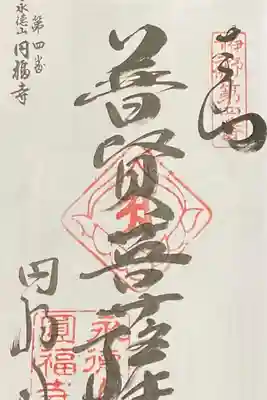 普賢菩薩
円福
第四番
永徳山 円福寺
永徳
圓福寺